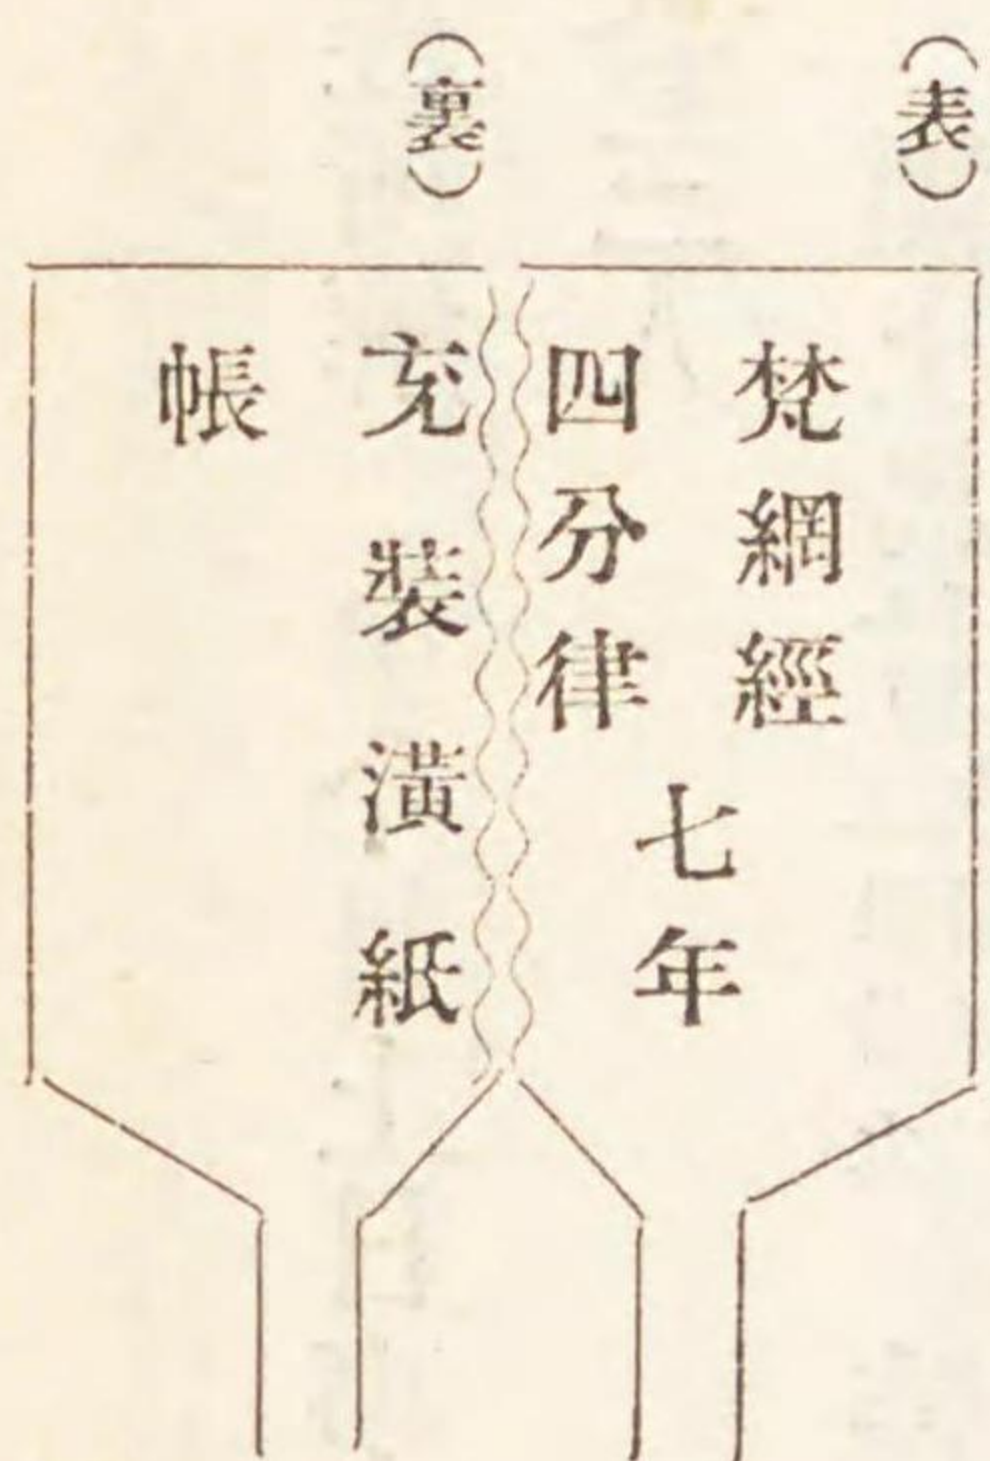 (表)
梵網經
四分律
七年
(裏)
充裝潢紙
帳